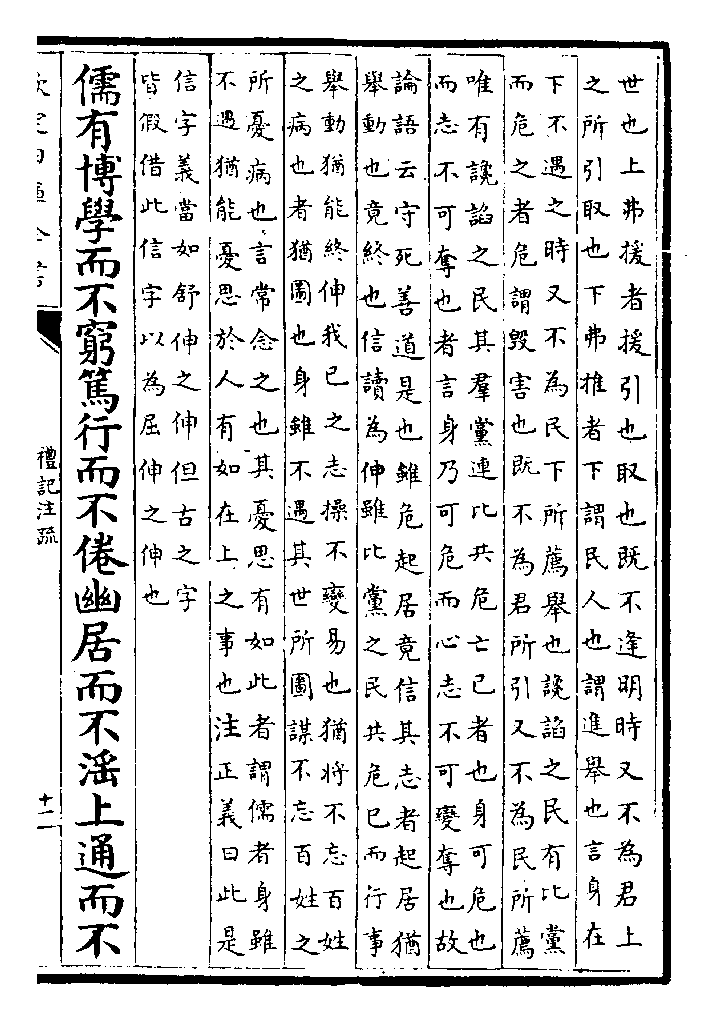 世也上弗援者援引也取也既不逢明時又不為君上
之所引取也下弗推者下謂民人也謂進舉也言身在
下不遇之時又不為民下所薦舉也讒諂之民有比黨
而危之者危謂毀害也既不為君所引又不為民所薦
唯有讒諂之民其羣黨連比共危亡已者也身可危也
而志不可奪也者言身乃可危而心志不可變奪也故
論語云守死善道是也雖危起居竟信其志者起居猶
舉動也竟終也信讀為伸雖比黨之民共危已而行事
舉動猶能終伸我已之志操不變易也猶將不忘百姓
之病也者猶圖也身雖不遇其世所圖謀不忘百姓之
所憂病也言常念之也其憂思有如此者謂儒者身雖
不遇猶能憂思於人有如在上之事也注正義曰此是
信字義當如舒伸之伸但古之字
皆假借此信字以為屈伸之伸也
儒有博學而不窮篤行而不倦幽居而不淫上通而不
欽定四庫全書
禮記注疏
十二